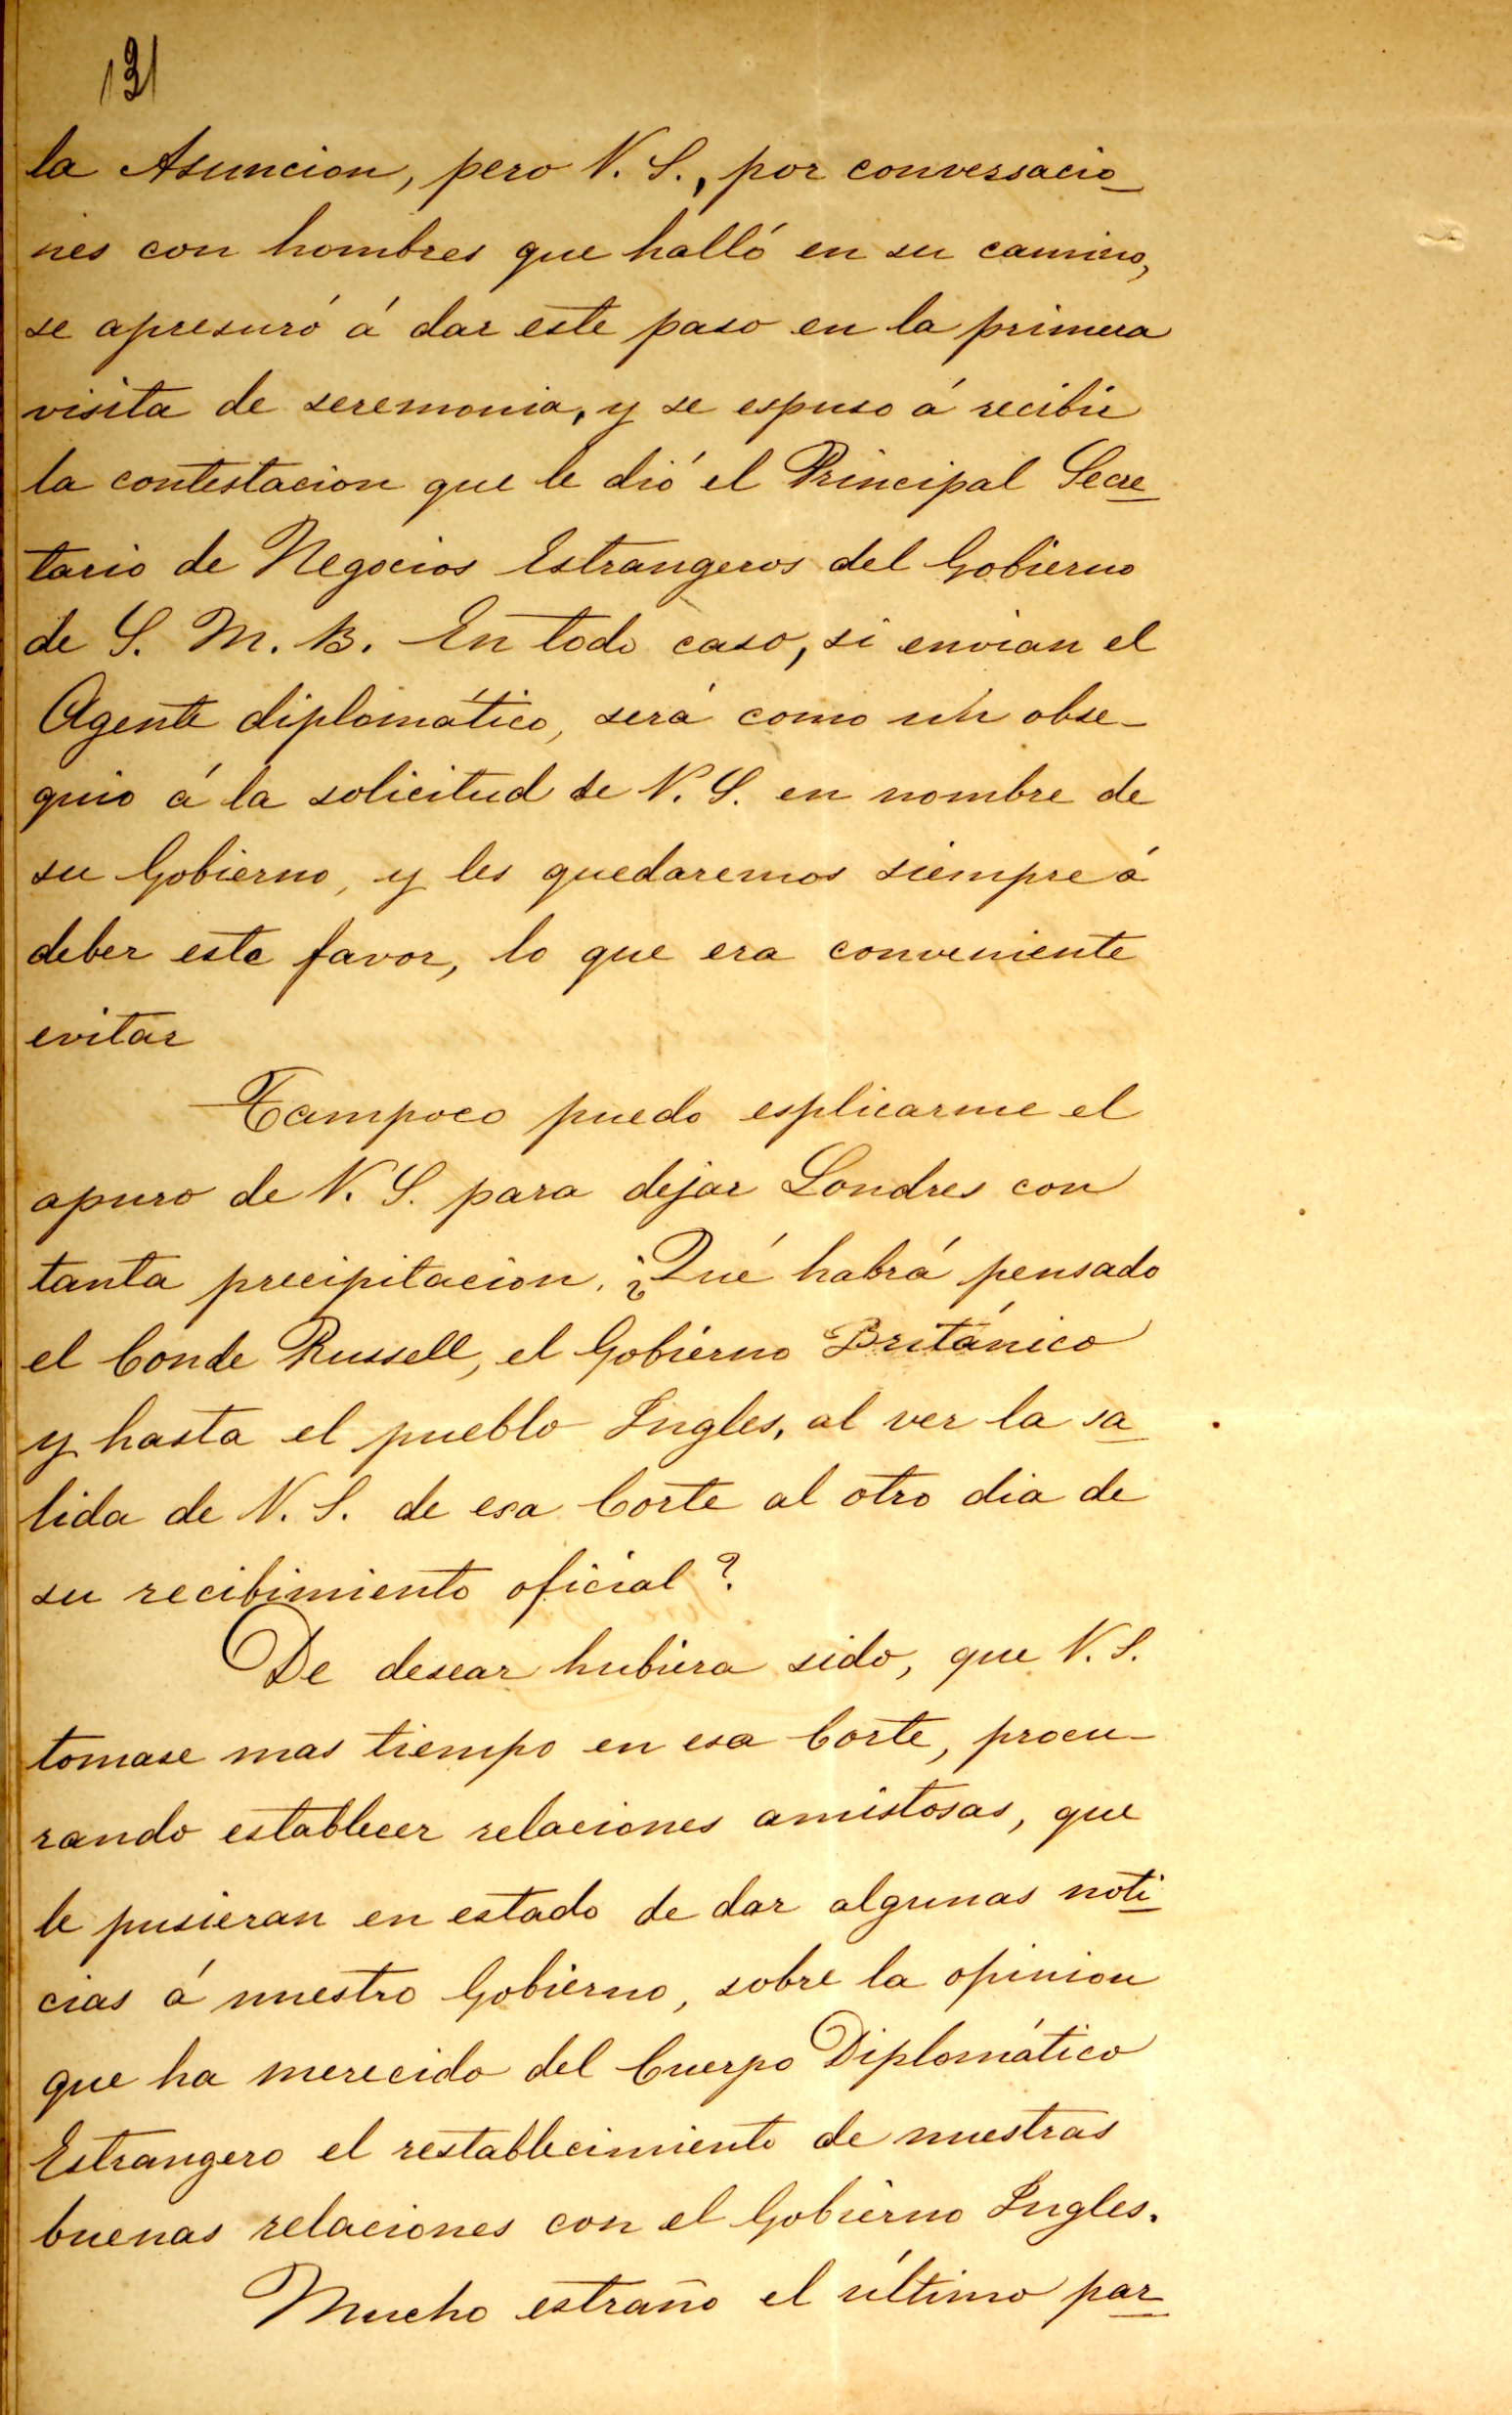 131
la Asuncion, pero V. S., por conversacio_
nes con hombres que halló en su camino,
se apresuró á dar este paso en la primera
visita de seremonia, y se espuso á recibir
la contestacion que le dió el Principal Secre_
tario de Negocios Estrangeros del Gobierno
de S. M. B. En todo caso, si envian el
Agente diplomático, será como un obse_
quio á la solicitud de V. S. en nombre de
su Gobierno, y les quedaremos siempre á
deber este favor, lo que era conveniente
evitar
Tampoco puedo esplicarme el
apuro de V. S. para dejar Londres con
tanta precipitacion. ¿Qué habrá pensado
el Conde Russell, el Gobierno Británico
y hasta el pueblo Ingles, al ver la sa_
lida de V. S. de esa Corte al otro dia de
su recibimiento oficial?
De desear hubiera sido, que V. S.
tomase mas tiempo en esa Corte, procu_
rando establecer relaciones amistosas, que
le pusieran en estado de dar algunas noti_
cias á nuestro Gobierno, sobre la opinion
que ha merecido del Cuerpo Diplomático
Estrangero el restablecimiento de nuestras
buenas relaciones con el Gobierno Ingles.
Mucho estraño el último par_